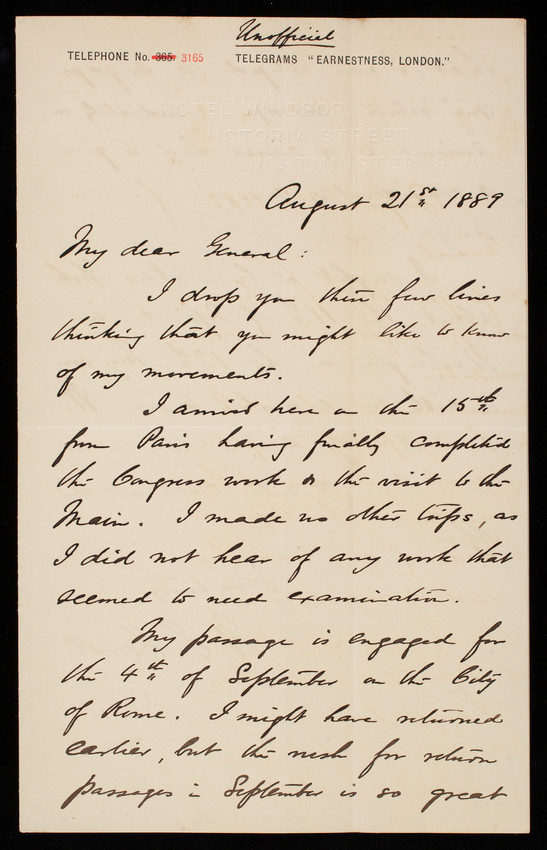 Unofficial
TELEPHONE No. 365. 3165 TELEGRAMS "EARNESTNESS, LONDON."
HOTEL WINDSOR
VICTORIA STREET
WESTMINSTER S.W.
August 21st 1889
My dear General:
I drop you these few lines
thinking that you might like to know
of my movements.
I arrived here on the 15th
from Paris having finally completed
the Congress work & the visit to the
Main. I made no other trips, as
I did not hear of any work that
seemed to need examination.
My passage is engaged for
the 4th of September on the City
of Rome. I might have returned
earlier, but the rush for return
passages in September is so great